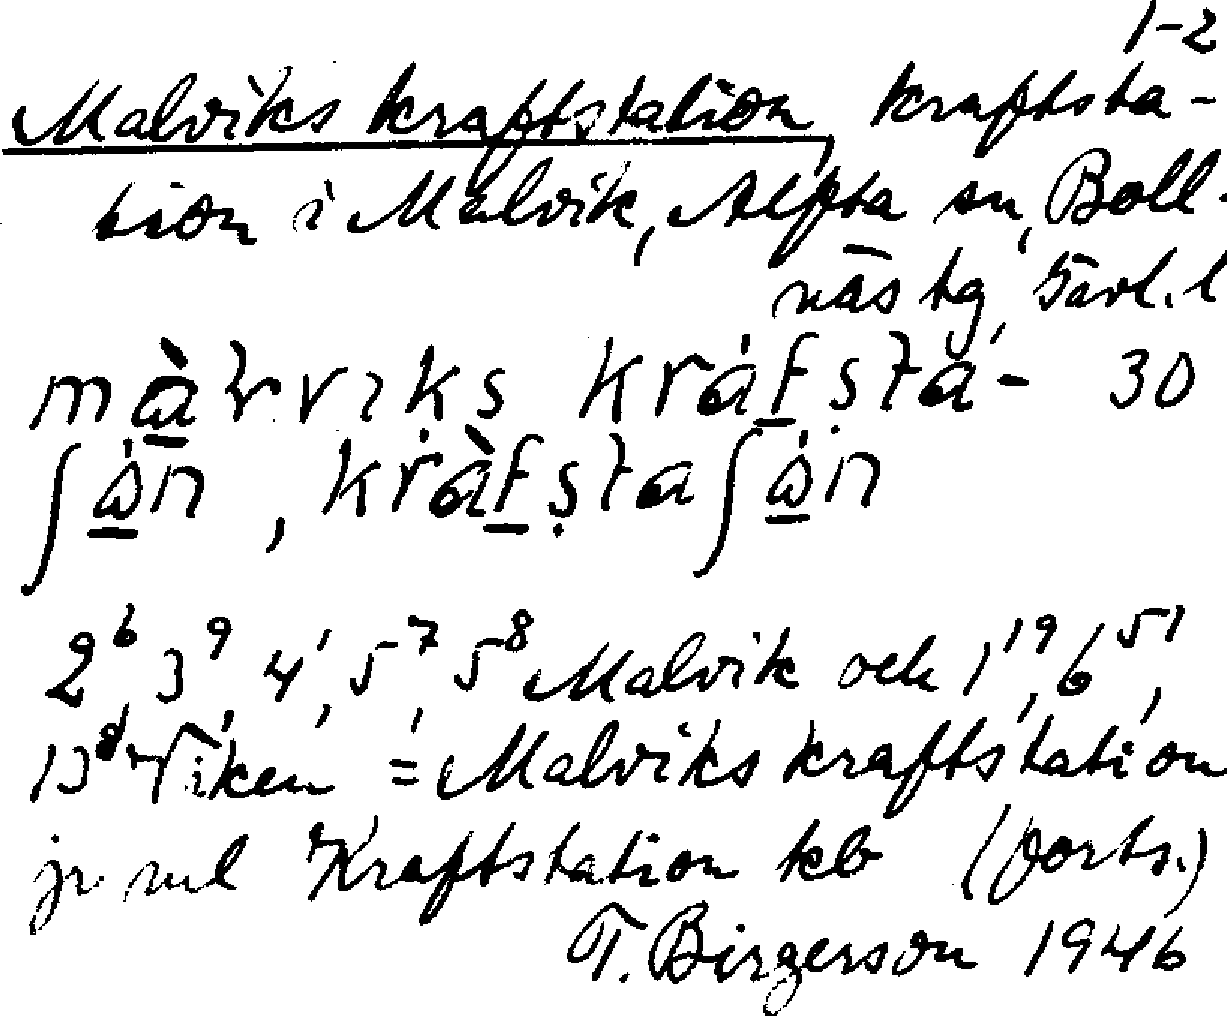 1-2
Malviks kraftstation, kraftsta-
tion i Malvik, Alfta sn, Boll-
näs tg, Gävl. l
30
2⁶, 3⁹, 4¹, 5⁷, 5⁸ Malvik och 1¹⁹, 6⁵¹,
13⁸ Viken = Malviks kraftstation
jr ml Kraftstation kb (forts.)
T. Birgerson 1946